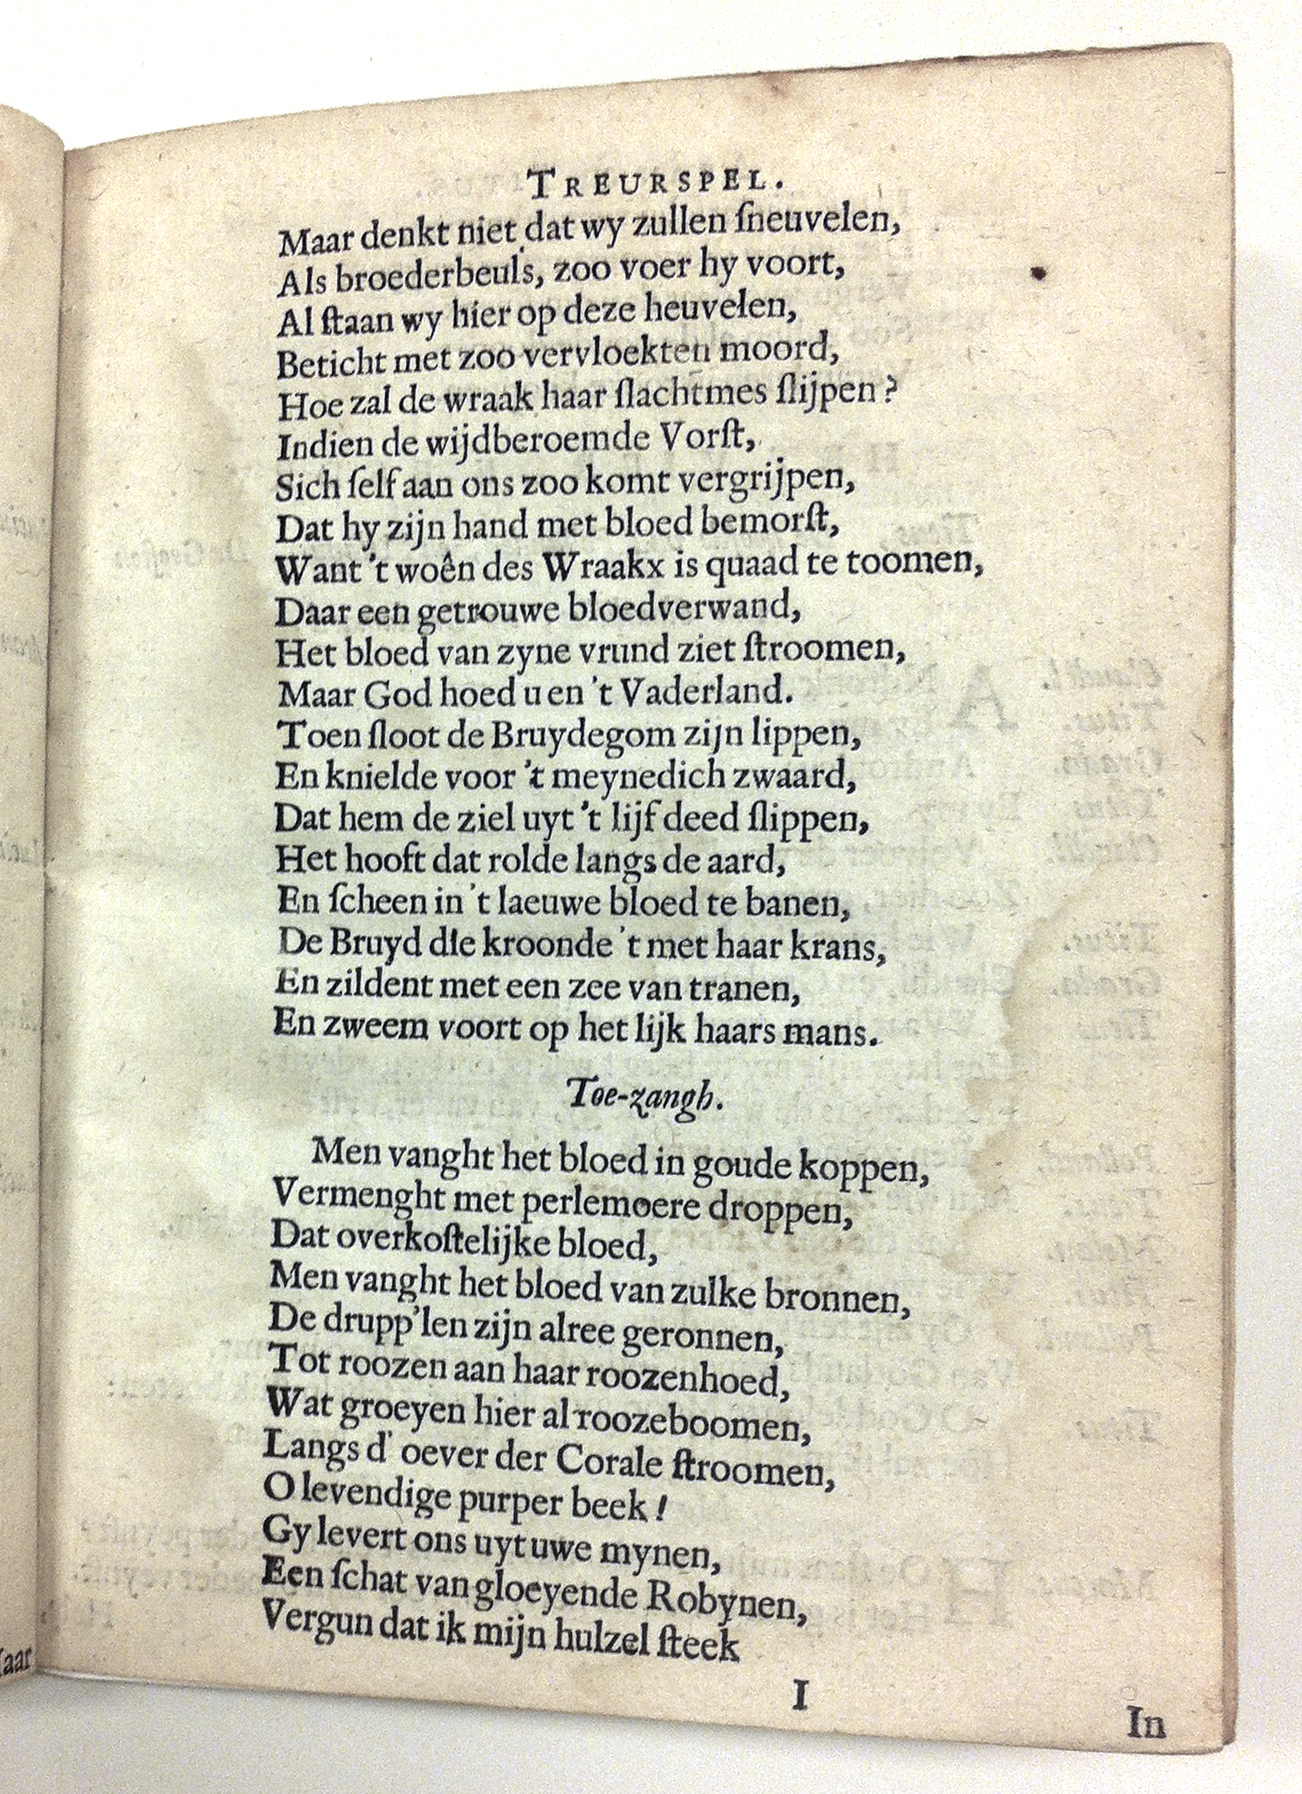 TREURSPEL.
Maar denkt niet dat wy zullen ſneuvelen,
Als broederbeuls, zoo voer hy voort,
Al ſtaan wy hier op deze heuvelen,
Beticht met zoo vervloekten moord,
Hoe zal de wraak haar ſlachtmes ſlijpen?
Indien de wijdberoemde Vorſt,
Sich ſelf aan ons zoo komt vergrijpen,
Dat hy zijn hand met bloed bemorſt,
Want 't woên des Wraakx is quaad te toomen,
Daar een getrouwe bloedverwand,
Het bloed van zyne vrund ziet ſtroomen,
Maar God hoed u en 't Vaderland.
Toen ſloot de Bruydegom zijn lippen,
En knielde voor 't meynedich zwaard,
Dat hem de ziel uyt 't lijf deed ſlippen,
Het hooft dat rolde langs de aard,
En ſcheen in 't laeuwe bloed te banen,
De Bruyd die kroonde 't met haar krans,
En zildent met een zee van tranen,
En zweem voort op het lijk haars mans.
Toe-zangh.
Men vanght het bloed in goude koppen,
Vermenght met perlemoere droppen,
Dat overkoſtelijke bloed,
Men vanght het bloed van zulke bronnen,
De drupp'len zijn alree geronnen,
Tot roozen aan haar roozenhoed,
Wat groeyen hier al roozeboomen,
Langs d' oever der Corale ſtroomen,
O levendige purper beek!
Gy levert ons uyt uwe mynen,
Een ſchat van gloeyende Robynen,
Vergun dat ik mijn hulzel ſteek
I
In